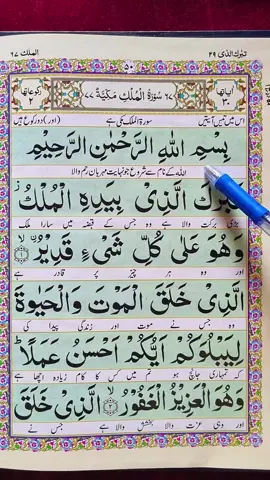 تبٰرک الذی ۲۹
الملک ۶۷
اٰیاتہا ۳۰
۶۷ سُوْرَةُ الْمُلْكِ مَكِّيَّةٌ ۷۷
رکوعاتہا ۲
اس میں تیس آیتیں سورۃ الملک مکی ہے (اور) دو رکوع ہیں
بِسْمِ اللّٰهِ الرَّحْمٰنِ الرَّحِيْمِ
اللہ کے نام سے شروع جو نہایت مہربان رحم والا
الَّذِيْ بِيَدِهِ الْمُلْكُ
بڑی برکت والا ہے وہ جس کے قبضہ میں سارا ملک
وَهُوَ عَلٰى كُلِّ شَيْءٍ قَدِيْرُ ۝۱
اور وہ ہر چیز پر قادر ہے
الَّذِيْ خَلَقَ الْمَوْتَ وَالْحَيٰوةَ
وہ جس نے موت اور زندگی پیدا کی
لِيَبْلُوَكُمْ اَيُّكُمْ اَحْسَنُ عَمَلًا ؕ
کہ تمہاری جانچ ہو تم میں کس کا کام زیادہ اچھا ہے
وَهُوَ الْعَزِيْزُ الْغَفُوْرُ ۝۲ الَّذِيْ خَلَقَ
اور وہی عزت والا بخشش والا ہے جس نے